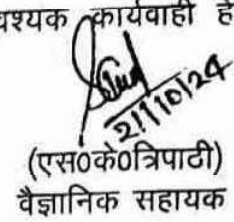 श्यक कार्यवाही हे
21/10/24
(एस0के0त्रिपाठी)
वैज्ञानिक सहायक